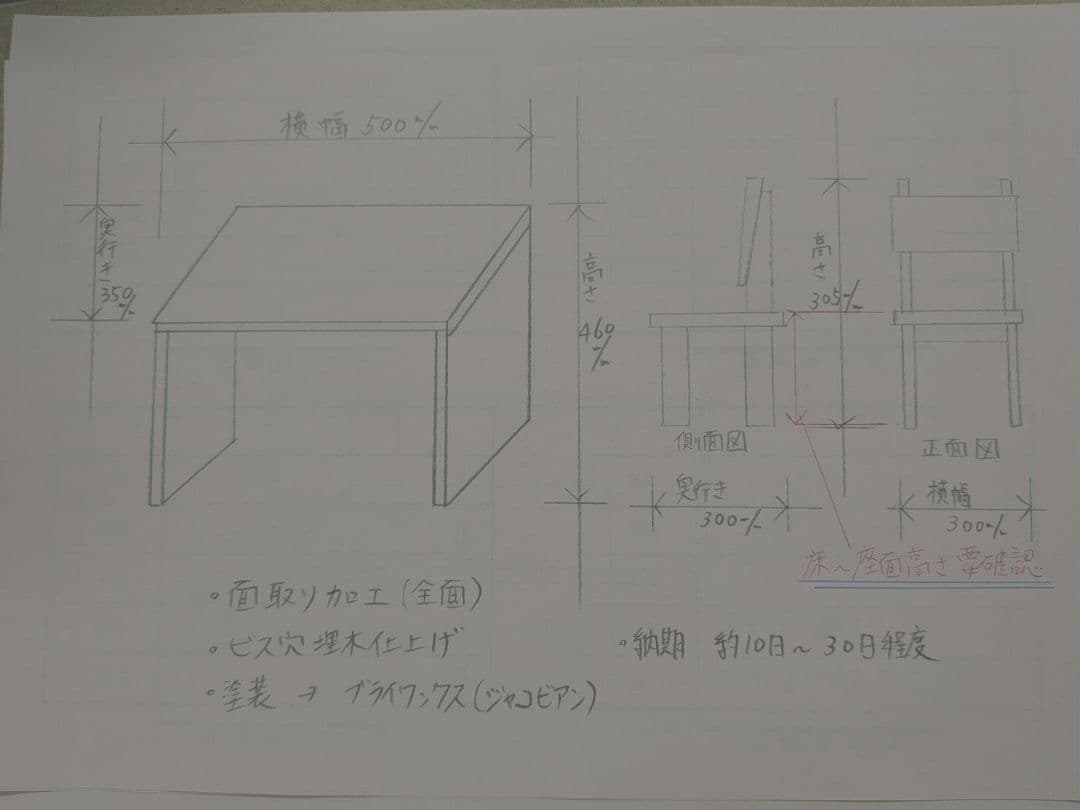 横幅 500m/m
奥行き
350m/m
高さ
460m/m
高さ
305m/m
側面図
正面図
奥行き
300m/m
横幅
300m/m
床~座面高さ要確認
・面取り加工(全面)
・ビス穴埋木仕上げ
・塗装→ブライワックス(ジャコビアン)
・納期 約10日~30日程度